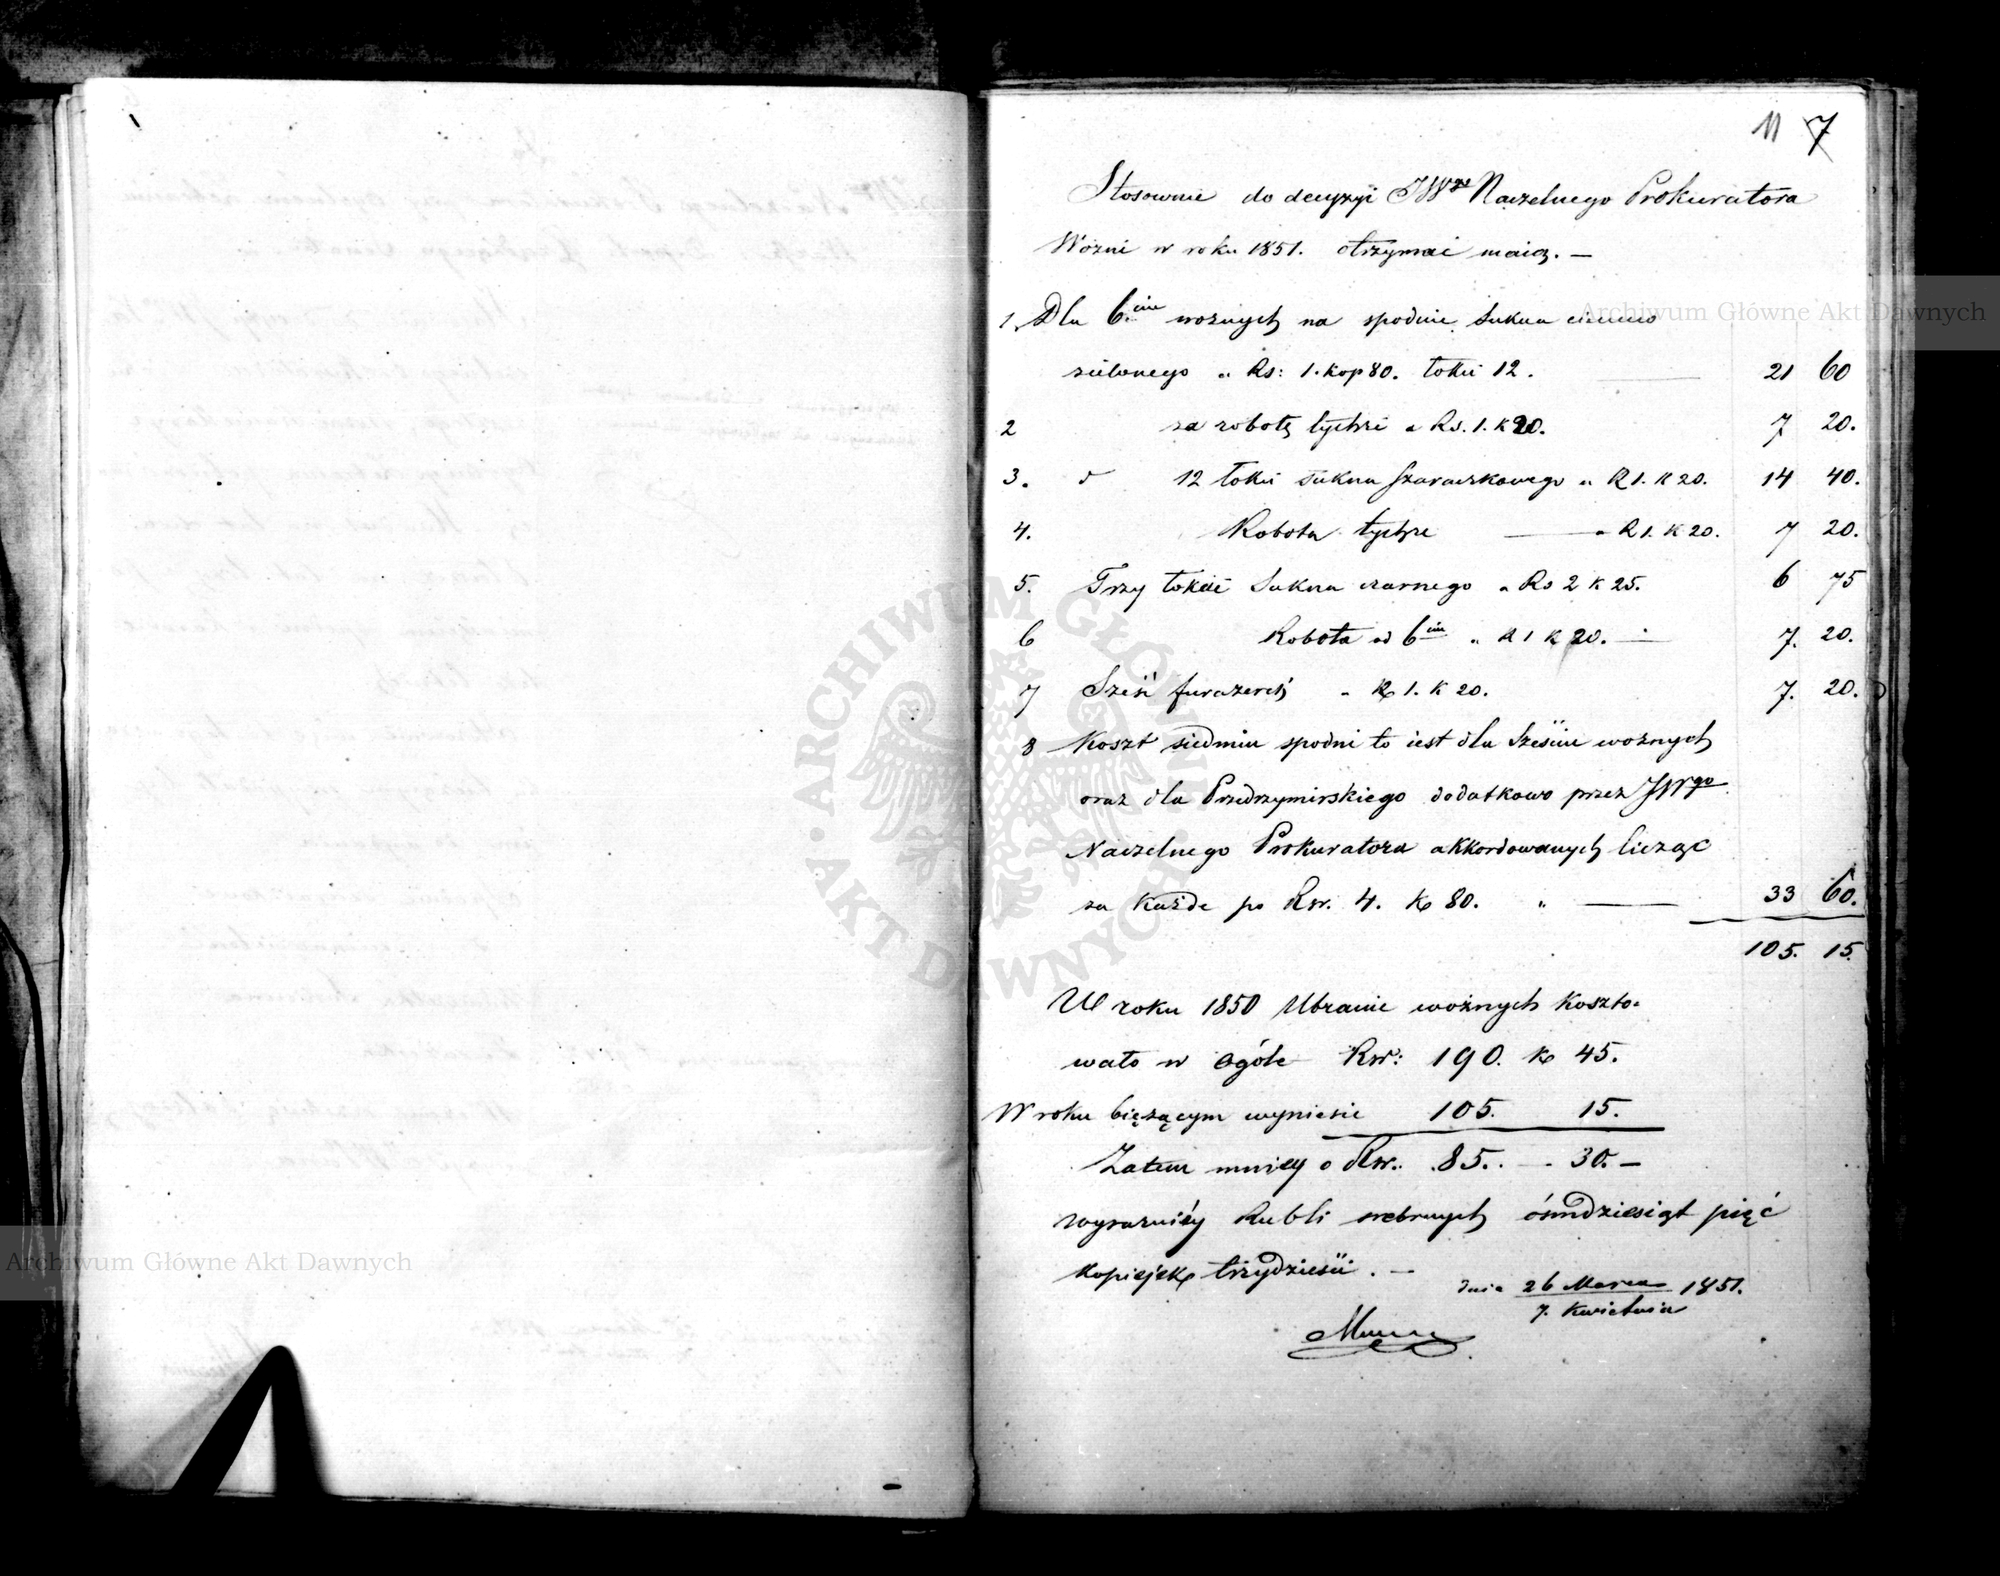 11 7
Stosownie do decyzyi JWgo Naczelnego Prokuratora
Woźni w roku 1851. otrzymać maią. —
1. Dla 6ciu woznych na spodnie sukna ciemno
zielonego a Rs: 1. kop 80. łokci 12. — 21 60
2 za robotę tychże a Rs. 1. K 20. 7 20.
3. d 12 łokci sukna szaraczkowego a R 1. K 20. 14 40.
4. Robota tychże — a R 1. K 20. 7 20.
5. Trzy łokcie sukna czarnego a Rs 2 K 25. 6 75
6 Robota od 6ciu a R 1 K 20. — 7. 20.
7 Sześć furażerek a R 1. K 20. 7. 20.
8 Koszt siedmiu spodni to iest dla sześciu woznych
oraz dla Przedrzymirskiego dodatkowo przez JWgo
Naczelnego Prokuratora akkordowanych licząc
za każde po Rsr. 4. K 80. " — 33 60.
105. 15.
W roku 1850 Ubranie woźnych koszto-
wało w ogóle Rsr: 190. K 45.
W roku bieżącym wyniesie 105. 15.
Zatem mniey o Rsr. 85. — 30. —
wyrazniéy Rubli srebrnych ośmdziesiąt pięć
kopiejek trzydzieści. —
dnia 26 Marca 1851.
7. Kwietnia
Archiwum Główne Akt Dawnych
Archiwum Główne Akt Dawnych
ARCHIWUM GŁÓWNE AKT DAWNYCH